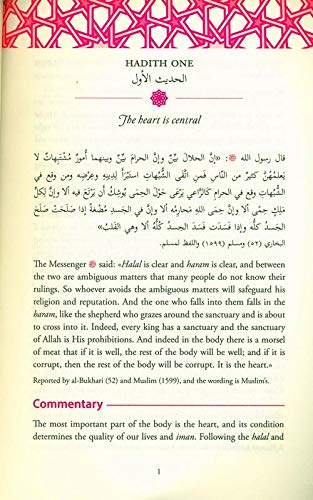 HADITH ONE
الحديث الأول
The heart is central
قال رسول الله ﷺ: «إنَّ الحلالَ بيِّنٌ وإن الحرامَ بيِّنٌ وبينهما أُمورٌ مُشْتَبِهاتٌ لا
يَعلمُهُنَّ كثيرٌ من النَّاسِ فمن اتَّقى الشُّبُهاتِ استبْرَأَ لِدِينِهِ وعِرْضِهِ ومن وقع في
الشُّبُهاتِ وقع في الحرام كالرَّاعي يَرْعَى حَوْلَ الحِمى يُوشِكُ أن يَرْتَعَ فيه ألا وإنَّ لِكلِّ
مَلِكٍ حِمًى ألا وإن حِمَى الله مَحارِمُه ألا وإن في الجسدِ مُضْغَةً إذا صَلَحَتْ صَلَحَ
الجسدُ كلُّه وإذا فَسَدَتْ فَسَدَ الجسدُ كلُّهُ ألا وهي القلب»
البخاري (٥٢) ومسلم (١٥٩٩) واللفظ لمسلم.
The Messenger ﷺ said: «Halal is clear and haram is clear, and between
the two are ambiguous matters that many people do not know their
rulings. So whoever avoids the ambiguous matters will safeguard his
religion and reputation. And the one who falls into them falls in the
haram, like the shepherd who grazes around the sanctuary and is about
to cross into it. Indeed, every king has a sanctuary and the sanctuary
of Allah is His prohibitions. And indeed in the body there is a morsel
of meat that if it is well, the rest of the body will be well; and if it is
corrupt, then the rest of the body will be corrupt. It is the heart.»
Reported by al-Bukhari (52) and Muslim (1599), and the wording is Muslim's.
Commentary
The most important part of the body is the heart, and its condition
determines the quality of our lives and iman. Following the halal and
1